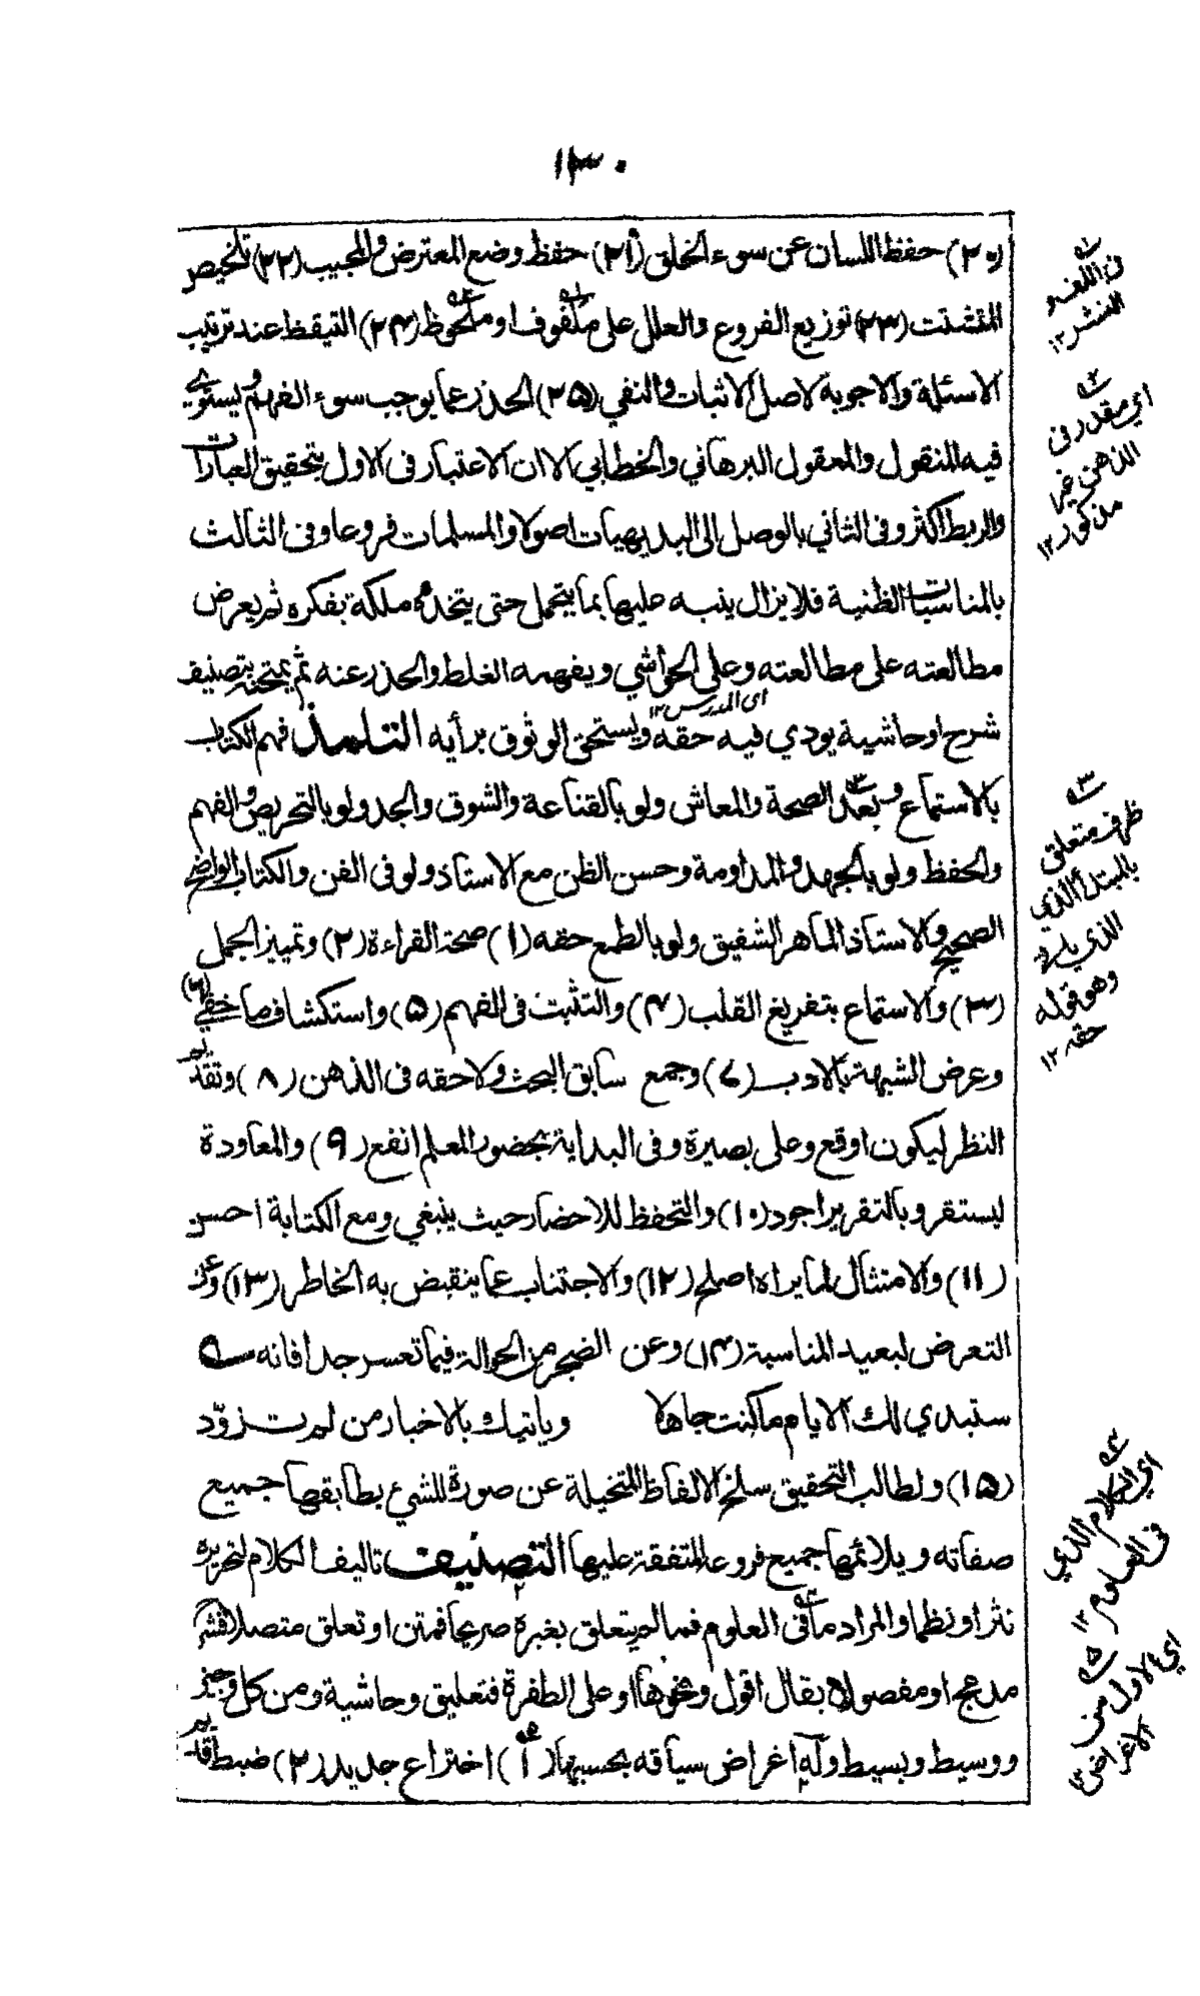 ١٣٠
(٢٠) حفظ اللسان عن سوء الخلق (٢١) حفظ وضع المعترض والمجيب (٢٢) تلخيص
المتشتت (٢٣) توزيع الفروع والعلل على ملفوف او ملحوظ (٢٤) التيقظ عند ترتيب
الاسئلة والاجوبة لاصل الاثبات والنفي (٢٥) الحذر عما يوجب سوء الفهم ويستوي
فيه المنقول والمعقول البرهاني والخطابي الا ان الاعتبار في الاول بتحقيق العبارات
والربط اكثر وفي الثاني بالوصل الى البديهيات اصولا والمسلمات فروعا وفى الثالث
بالمناسبات الظنية فلا يزال ينبه عليها بما يتحمل حتى يتخذه ملكة بفكره ثم يعرض
مطالعته على مطالعته وعلى الحواشي ويفهمه الغلط والحذر عنه ثم يمتحنه بتصنيف
اى المدرس ١٢
شرح او حاشية يودي فيه حقه ويستحق الوثوق برأيه التلمذ فهم الكتاب
بالاستماع وبعد الصحة والمعاش ولو بالقناعة والشوق والجد ولو بالتحريص والفهم
والحفظ ولو بالجهد والمداومة وحسن الظن مع الاستاذ ولو فى الفن والكتاب الواضح
الصحيح والاستاذ الماهر الشفيق ولو بالطمع حقه (١) صحة القراءة (٢) وتمييز الجمل
(٣) والاستماع بتفريغ القلب (٤) والتثبت فى الفهم (٥) واستكشاف ما خفي (٦)
وعرض الشبهة بالادب (٧) وجمع سابق البحث ولاحقه فى الذهن (٨) وتقديم
النظر ليكون اوقع وعلى بصيرة وفى البداية بحضور المعلم انفع (٩) والمعاودة
ليستقر وبالتقرير اجود (١٠) والتحفظ للاحضار حيث ينبغي ومع الكتابة احسن
(١١) والامتثال لما يراه اصلح (١٢) والاجتناب عما ينقبض به الخاطر (١٣) وعن
التعرض لبعيد المناسبة (١٤) وعن الضجر من الحوالة فيما تعسر جدا فانه
ستبدي لك الايام ما كنت جاهلا وياتيك بالاخبار من لم تزوّد
(١٥) ولطالب التحقيق سلخ الالفاظ المتخيلة عن صورة للشيء يطابقها جميع
صفاته ويلائمها جميع فروعه المتفقة عليها التصنيف تاليف الكلام لتحريره
نثرا او نظما والمراد ما فى العلوم فما لم يتعلق بغيره صريحا فمتن او تعلق متصلا فشرح
مدمج او مفصولا بقال اقول ونحوها او على الطفرة فتعليق وحاشية ومن كل وجيز
ووسيط وبسيط وله اغراض سياقه بحسبها (١) اختراع جديد (٢) ضبط
فى اللف و
النشر ١٢
اي مقدر فى
الذهن غير
مذكور ١٢
ظرف متعلق
بالمبتدأ الذي
وهو قوله
حقه ١٢
اي الكلام الذي
فى العلوم ١٢
اي الاول من
الاغراض ١٢